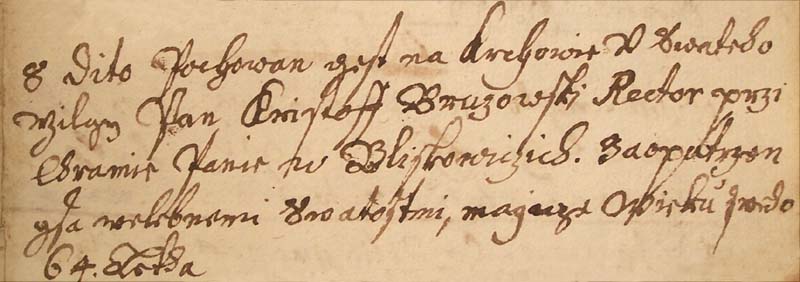 8 dito Pochowan gest na Krchowie V Swateho
Wilgm Pan Kristoff Bruzowski Rector przi
Chramie Panie w Bliskowiczich. Zaopatrzen
gsa welebnemi Swatostmi, magicze Wieku sweho
64. Letha